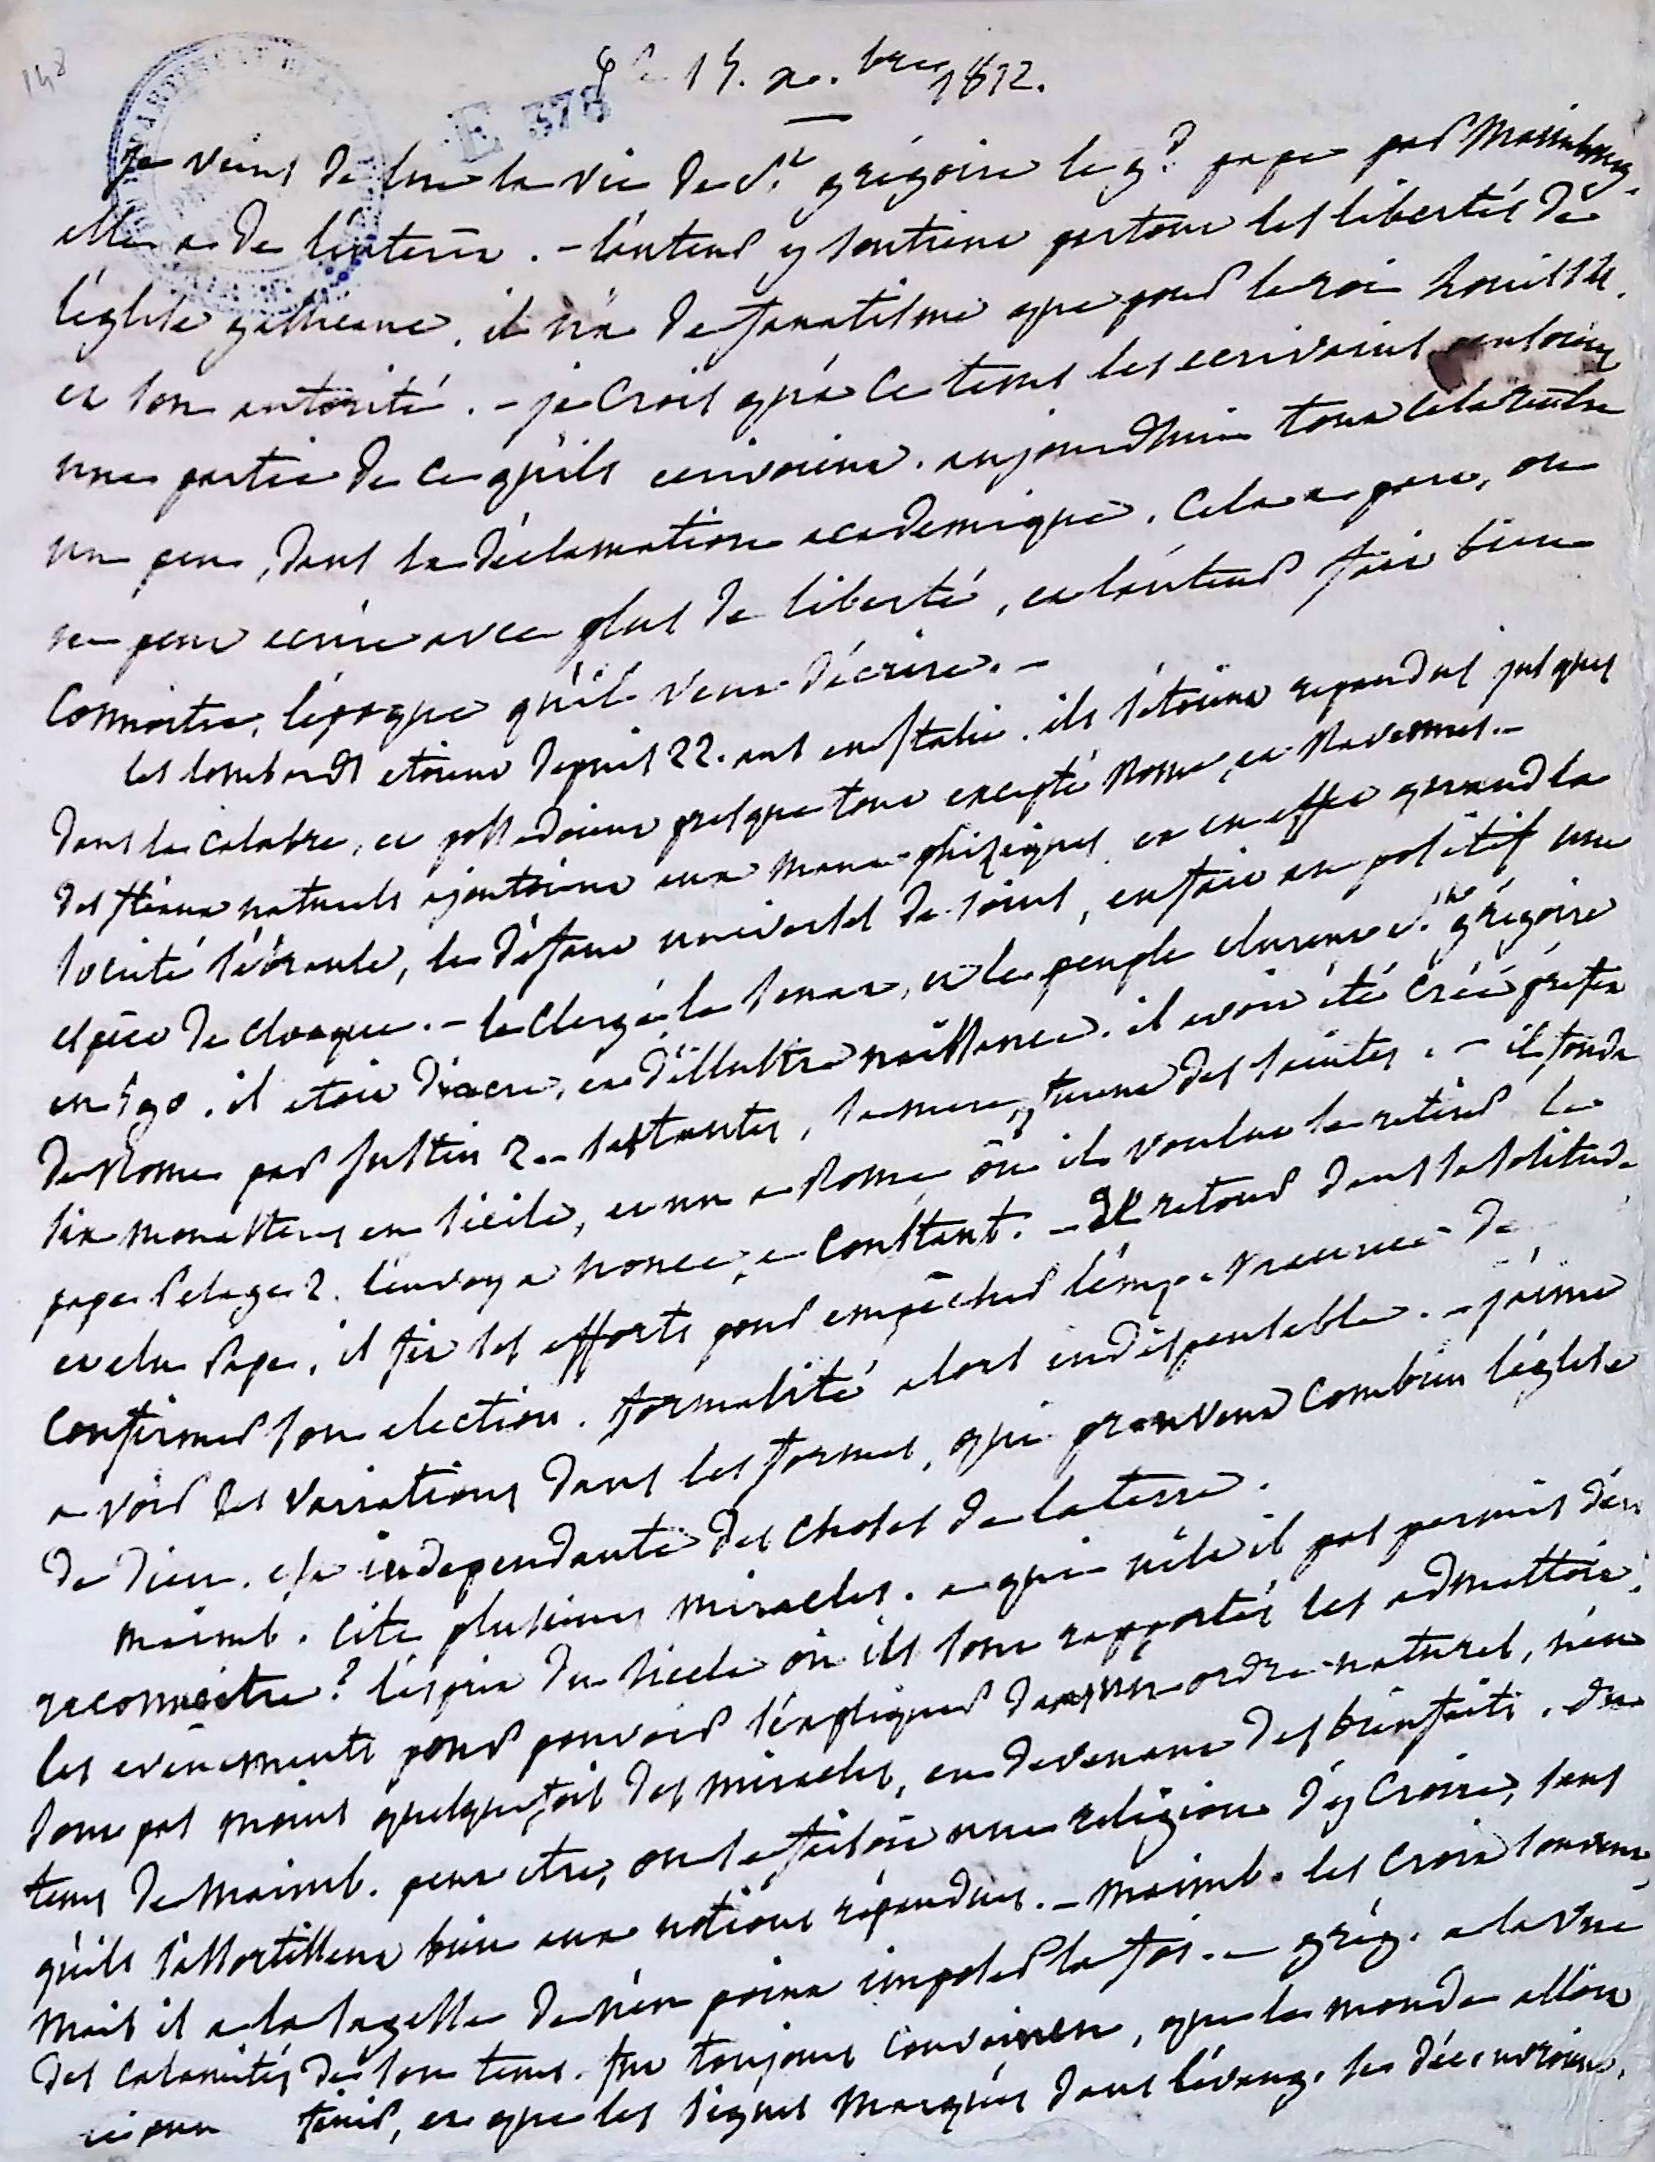 148
E 378
15. xbre 1812.
Je viens de lire la vie de St. grégoire le gd. pape par Maimbourg.
elle a de l'interêt. - l'auteur y soutient partout les libertés de
l'église gallicane, il n'a de fanatisme que pour le roi Louis 14.
et son autorité. - je crois qu'à ce tems les ecrivains
une partie de ce qu'ils ecrivoient. aujourdhui tout cela rentre
un peu, dans la déclamation academique. Cela a part, on
ne peut ecrire avec plus de liberté, et l'auteur fait bien
Connoitre, l'époque qu'il veut décrire. -
les lombards etoient depuis 22. ans en Italie. ils s'étoient repandus jusques
dans la Calabre, et possedoient presque tout excepté Rome, et Ravennes. -
des fléaux naturels ajoutoient aux maux phisiques et en effet quand la
société s'ébranle, le défaut universel de soins, en fait au positif une
espece de cloaque. - le Clergé, le senat, et le peuple elurent St. grégoire
en 590. il etoit diacre, et d'illustre naissance. il avoit été créé préfet
de Rome par Justin 2. - ses tantes, sa mere, furent des saintes. - il fonda
six monasteres en Sicile, et un a Rome où il voulut se retirer le
pape Pelage 2. l'envoya nonce, a Constant. - de retour dans sa solitude
et elu Pape, il fit ses efforts pour empêcher l'emp. Maurice de
Confirmer son election. formalité alors indispensable. - j'aime
a voir des variations dans les formes, qui prouvent combien l'église
de Dieu. est independante des choses de la terre.
maimb. cite plusieurs miracles. a qui n'est il pas permis d'en
reconnoitre? l'esprit du siecle où ils sont rapportés les admettoit.
les evénements pour pouvoir s'expliquer dans un ordre naturel, n'en
sont pas moins quelquefois des miracles, en devenant des bienfaits. du
tems de Maimb. peut etre, on se faisoit une religion d'y croire, sans
qu'ils s'assortissent bien aux notions répandues. - Maimb. les croit souvent,
mais il a la sagesse de n'en point imposer la foi. - grég. a la vue
des calamités de son tems. fut toujours convaincu, que le monde alloit
finir, et que les signes marqués dans l'évang. se découvroient.